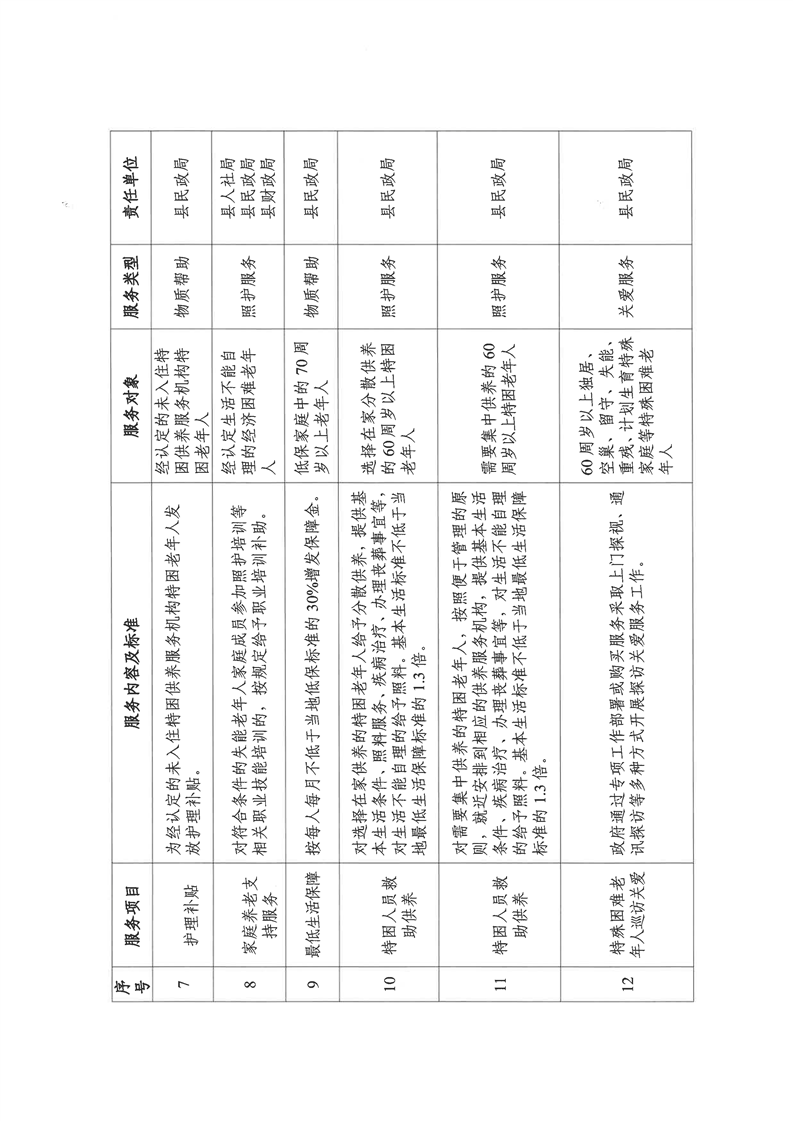 序号 服务项目 服务内容及标准 服务对象 服务类型 责任单位
7 护理补贴 为经认定的未入住特困供养服务机构特困老年人发
放护理补贴。
经认定的未入住特
困供养服务机构特
困老年人
物质帮助 县民政局
8 家庭养老支
持服务
对符合条件的失能老年人家庭成员参加照护培训等
相关职业技能培训的，按规定给予职业培训补助。
经认定生活不能自
理的经济困难老年
人
照护服务
县人社局
县民政局
县财政局
9 最低生活保障 按每人每月不低于当地低保标准的30%增发保障金。
低保家庭中的70周
岁以上老年人
物质帮助 县民政局
10 特困人员救
助供养
对选择在家供养的特困老年人给予分散供养，提供基
本生活条件、照料服务、疾病治疗、办理丧葬事宜等，
对生活不能自理的给予照料。基本生活标准不低于当
地最低生活保障标准的1.3倍。
选择在家分散供养
的60周岁以上特困
老年人
照护服务 县民政局
11 特困人员救
助供养
对需要集中供养的特困老年人，按照便于管理的原
则，就近安排到相应的供养服务机构，提供基本生活
条件、疾病治疗、办理丧葬事宜等，对生活不能自理
的给予照料。基本生活标准不低于当地最低生活保障
标准的1.3倍。
需要集中供养的60
周岁以上特困老年人
照护服务 县民政局
12 特殊困难老
年人巡访关爱
政府通过专项工作部署或购买服务采取上门探视、通
讯探访等多种方式开展探访关爱服务工作。
60周岁以上独居、
空巢、留守、失能、
重残、计划生育特殊
家庭等特殊困难老
年人
关爱服务 县民政局